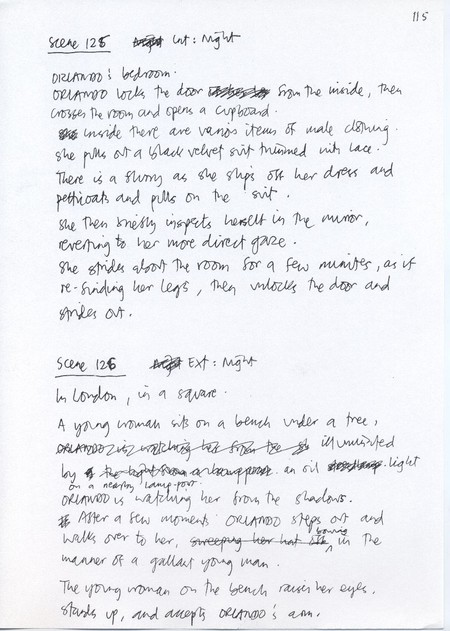 115
Scene 125 Int: Night
ORLANDO's bedroom.
ORLANDO locks the door from the inside, then
crosses the room and opens a cupboard.
Inside there are various items of male clothing.
She pulls out a black velvet suit trimmed with lace.
There is a flurry as she slips off her dress and
petticoats and pulls on the suit.
She then briefly inspects herself in the mirror,
reverting to her more direct gaze.
She strides about the room for a few minutes, as if
re-finding her legs, then unlocks the door and
strides out.
Scene 126 Ext: Night
In London, in a square.
A young woman sits on a bench under a tree,
ORLANDO is watching her from the illuminated
by the light from a an oil light
on a nearby lamp-post.
ORLANDO is watching her from the shadows.
After a few moments ORLANDO steps out and
bowing
walks over to her, sweeping her hat off in the
manner of a gallant young man.
The young woman on the bench raises her eyes,
stands up, and accepts ORLANDO's arm.